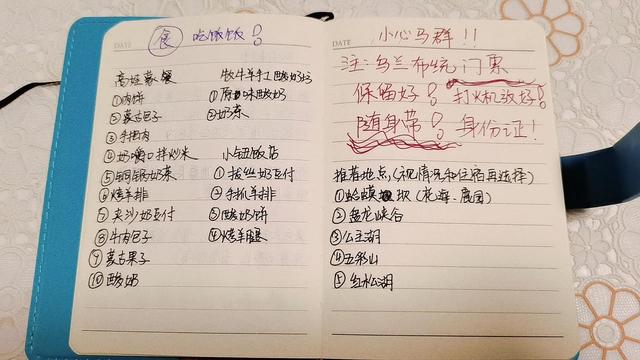 DATE
食 吃饭饭!
高娃蒙餐
①肉饼
②蒙古包子
③手把肉
④奶嚼口拌炒米
⑤铜锅奶茶
⑥烤羊排
⑦夹沙奶豆付
⑧牛肉包子
⑨蒙古果子
⑩酸奶
牧牛羊手工酸奶坊
①原味酸奶
②奶茶
小钰饭店
①拔丝奶豆付
②手抓羊排
③酸奶饼
④烤羊腿
DATE
小心马群!!
注:乌兰布统门票
保留好! 打火机放好!
随身带! 身份证!
推荐地点(视情况和住宿再选择)
①蛤蟆坝(花海、鹿园)
②盘龙峡谷
③公主湖
④五彩山
⑤红松湖